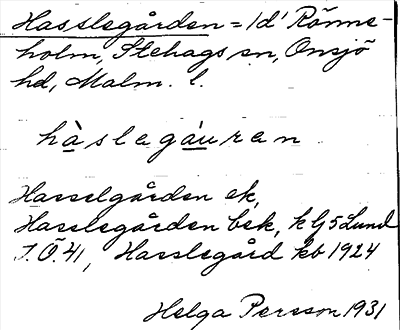 Hasslegården = /d' Rönne-
holm, Stehags sn, Onsjö
hd, Malm. l.
hàslegáuren
Hasselgården ek,
Hasslegården bek, k G 5 Lund
J.Ö. 41, Hasslegård kb 1924
Helga Persson 1931